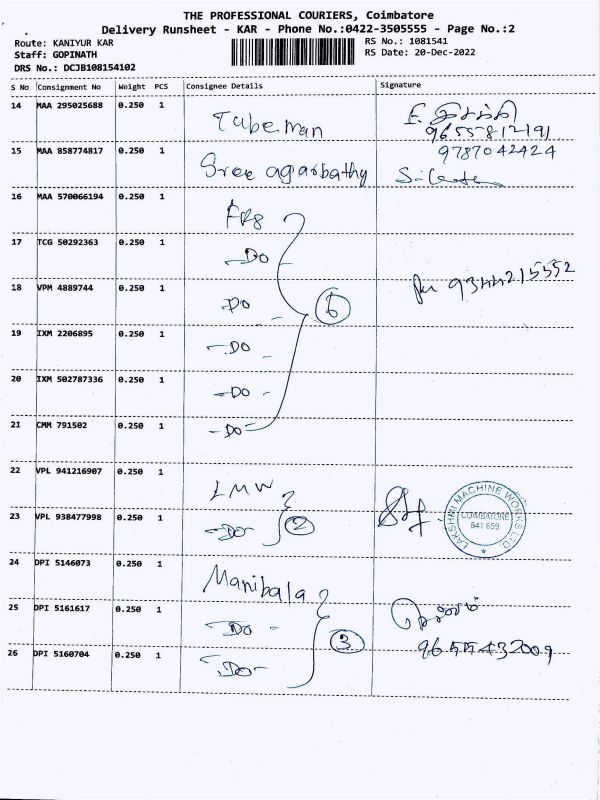 THE PROFESSIONAL COURIERS, Coimbatore
Delivery Runsheet - KAR - Phone No.:0422-3505555 - Page No.:2
Route: KANIYUR KAR
RS No.: 1081541
Staff: GOPINATH
RS Date: 20-Dec-2022
DRS No.: DCJB108154102
S No Consignment No Weight PCS Consignee Details Signature
14 MAA 295025688 0.250 1 Tubeman
9655781291
15 MAA 858774817 0.250 1 Sree agarbathy
9787042424
16 MAA 570066194 0.250 1
17 TCG 50292363 0.250 1 -Do
18 VPM 4889744 0.250 1 -Do - 6 9344215552
19 IXM 2206895 0.250 1 -Do -
20 IXM 502787336 0.250 1 -Do -
21 CMM 791502 0.250 1 -Do-
22 VPL 941216907 0.250 1 LMW
23 VPL 938477998 0.250 1 -Do- 2
LAKSHMI MACHINE WORKS LTD
COIMBATORE
641 659
24 DPI 5146073 0.250 1 Manibala
25 DPI 5161617 0.250 1 -Do - 3
26 DPI 5160704 0.250 1 -Do-